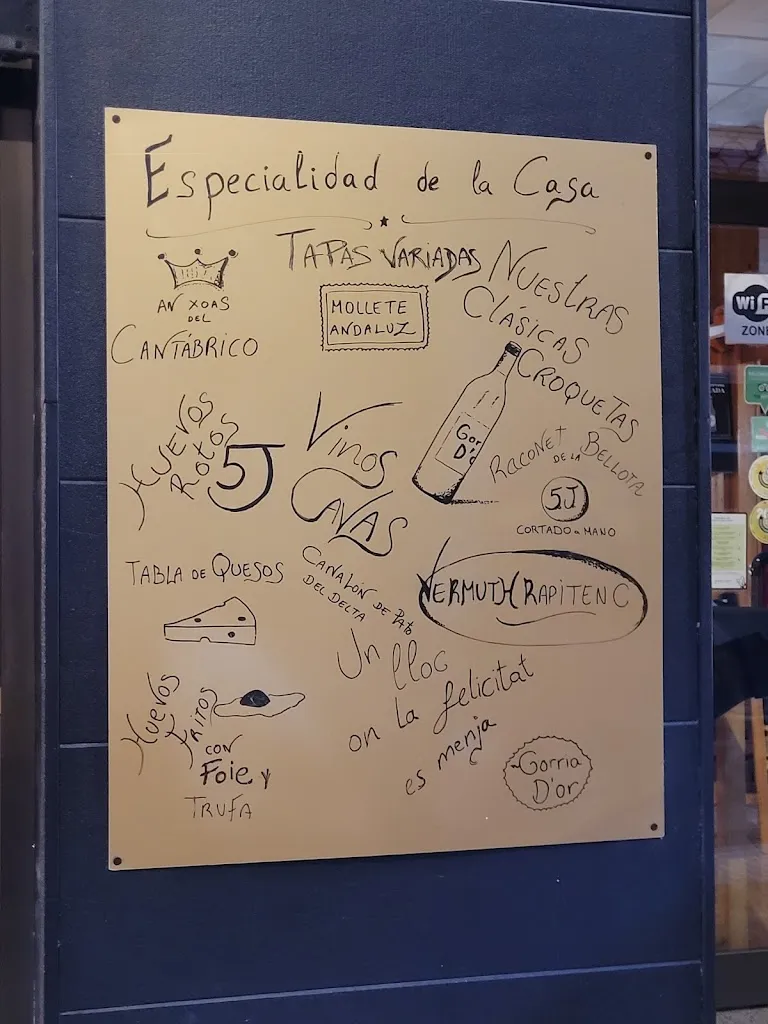 Especialidad de la Casa
TAPAS VARIADAS
ANXOAS
DEL
CANTÁBRICO
MOLLETE
ANDALUZ
NUESTRAS
CLÁSICAS
CROQUETAS
HUEVOS
ROTOS
5J
Vinos
CAVAS
Gor
D'o
RACONET
DE LA
BELLOTA
5J
CORTADO a MANO
TABLA DE QUESOS
CANALÓN DE PATO
DEL DELTA
VERMUTH RAPITENC
Un lloc
on la felicitat
es menja
Huevos
Fritos
CON
Foie y
TRUFA
Gorria
D'or
Wi F
ZONE